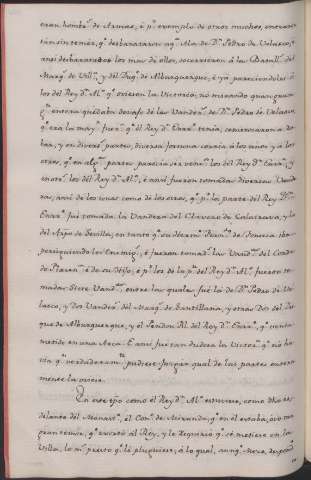 eran hombr.s de Armas, é p.r exemplo de otros muchos, entraron
tan sin temor, q.e desbarataron aq.l Ala de D.n Pedro de Velasco, é
ansi desbaratados los mas de ellos, se acorrieron á la Batall.a del
Marq.s de Vill.a y del Duq.e de Alburquerque, é yá pareciendoles á
los del Rey D.n Al.o q.e oviesen la Victoria, no mirando quan gran
q.e entera quedaba de las Vander.s de D.n Pedro de Velasco
q.e era la may.r fuer.a q.e el Rey D.n Enrr.e tenia,
y en diversas partes, diversa fortuna corria á los unos y á los
otros, q.e en alg.a parte parecia ser venc.s los del Rey D.n Enrr.e, y
en otr.a los del Rey D.n Al.o, é ansi fueron tomadas diversas Vande-
ras, ansi de los unos como de los otros, q.e p.r la parte del Rey D.n
Enrr.e fué tomada la Vandera del Clavero de Calatrava, y la
del Arzo.po de Sevilla, en tanto q.e su
persiguiendo los Enemig.s, é fueron tomad.s las Vand.s del Conde
de Plasen.a é de su Hijo, é p.r los de la p.te del Rey D.n Al.o fueron to-
madas siete Vand.s, entre las quales fué la de D.n Pedro de Ve-
lasco, y dos Vander.s del Marq.s de Santillana, y otras dos del Du-
que de Alburquerque, y el Pendon Rl. del Rey D.n Enrr.e, q.e venia
metido en una Aca. É ansi fue tan dudosa la Victor.a q.e no ha-
via q.n verdaderam.te pudiese juzgar qual de las partes entera-
mente la oviese.
En este tpo como el Rey D.n Al.o estuviese, como dho es
delante del Monast.o, el Con.e de Miranda, q.e en él estaba, ovo tan
gran temor, q.e escusó al Rey, y le requirió q.e se metiese en la
Villa, lo m.s presto q.e le pluguiese, á lo qual, aunq.e Mozo, respon-